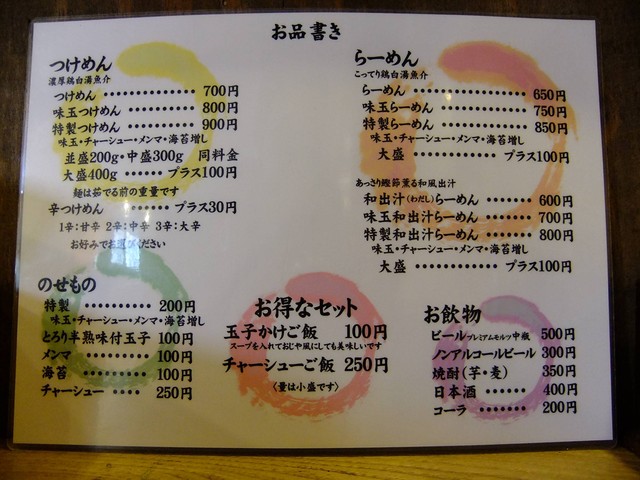 お品書き
つけめん
濃厚鶏白湯魚介
つけめん ・・・・・・・・・・・ 700円
味玉つけめん ・・・・・・・ 800円
特製つけめん ・・・・・・・ 900円
味玉・チャーシュー・メンマ・海苔増し
並盛200g・中盛300g 同料金
大盛400g ・・・・・・ プラス100円
麺は茹でる前の重量です
辛つけめん ・・・・・・ プラス30円
1辛：甘辛 2辛：中辛 3辛：大辛
お好みでお選びください
らーめん
こってり鶏白湯魚介
らーめん ・・・・・・・・・・・ 650円
味玉らーめん ・・・・・・・・・ 750円
特製らーめん ・・・・・・・・・ 850円
味玉・チャーシュー・メンマ・海苔増し
大盛 ・・・・・・・・・・ プラス100円
あっさり鰹節薫る和風出汁
和出汁（わだし）らーめん ・・・・・・ 600円
味玉和出汁らーめん ・・・・・・ 700円
特製和出汁らーめん ・・・・・・ 800円
味玉・チャーシュー・メンマ・海苔増し
大盛 ・・・・・・・・・・・ プラス100円
のせもの
特製 ・・・・・・・・・ 200円
味玉・チャーシュー・メンマ・海苔増し
とろり半熟味付玉子 100円
メンマ ・・・・・・・・ 100円
海苔 ・・・・・・・・・ 100円
チャーシュー ・・・・ 250円
お得なセット
玉子かけご飯 100円
スープを入れておじや風にしても美味しいです
チャーシューご飯 250円
〈量は小盛です〉
お飲物
ビール プレミアムモルツ中瓶 500円
ノンアルコールビール 300円
焼酎（芋・麦） 350円
日本酒 ・・・・・・ 400円
コーラ ・・・・・・・ 200円